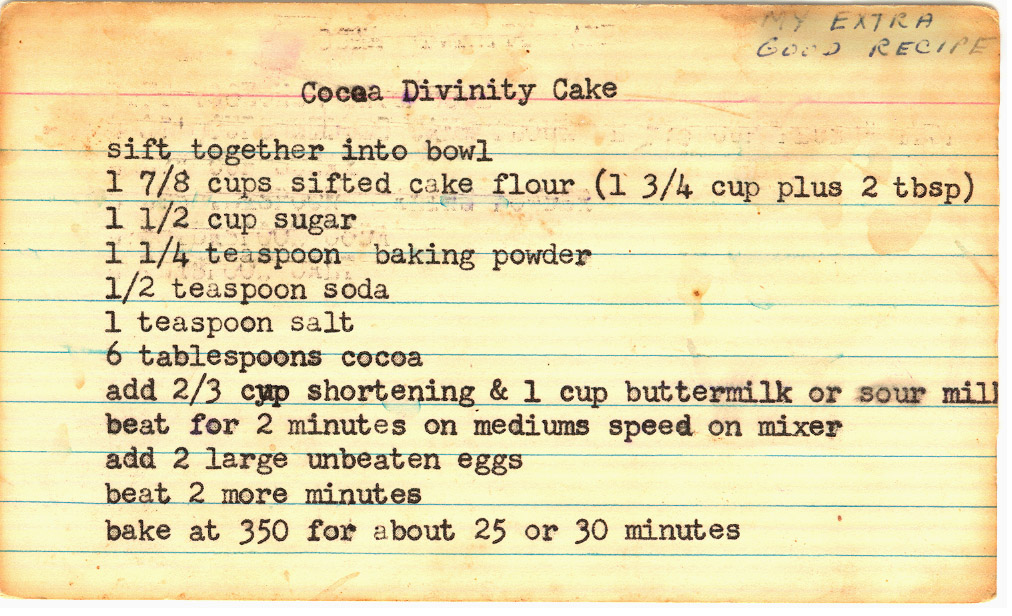 MY EXTRA
GOOD RECIPE
Cocoa Divinity Cake
sift together into bowl
1 7/8 cups sifted cake flour (1 3/4 cup plus 2 tbsp)
1 1/2 cup sugar
1 1/4 teaspoon baking powder
1/2 teaspoon soda
1 teaspoon salt
6 tablespoons cocoa
add 2/3 cup shortening & 1 cup buttermilk or sour mil
beat for 2 minutes on mediums speed on mixer
add 2 large unbeaten eggs
beat 2 more minutes
bake at 350 for about 25 or 30 minutes